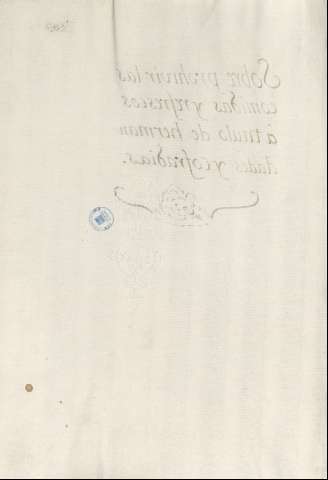 Sobre prohivir las
comidas y refrescos
á titulo de herman
dades y cofradias.